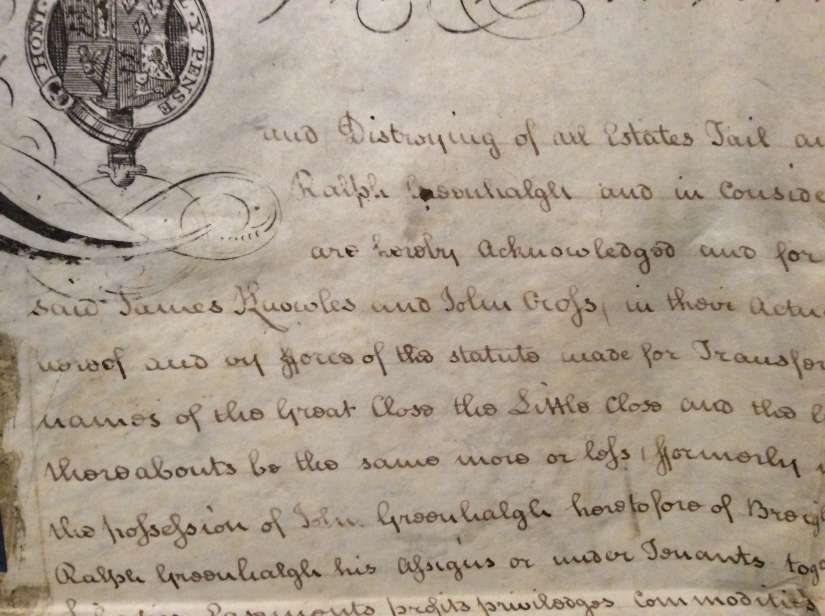 HONI
Y PENSE
and Distroying of all Estates Tail
Ralph Greenhalgh and in Conside
are hereby Acknowledged and for
said James Knowles and John Cross, in their Actu
hereof and by fforce of the statute made for Transfer
names of the Great Close the Little Close and the
thereabouts be the same more or less, fformerly
the possession of John Greenhalgh heretofore of
Ralph Greenhalgh his Assigns or under Tenants tog
Easements profits priviledges Commodities